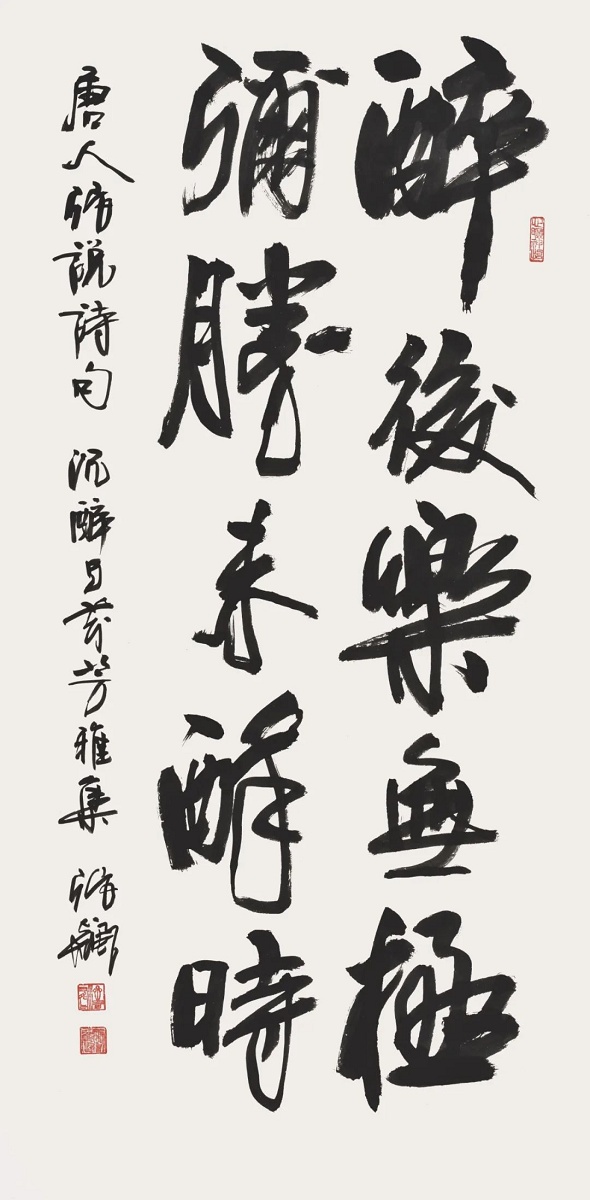 醉後樂無極
彌勝未醉時
唐人張說詩句 沉醉芬芳雅集 張